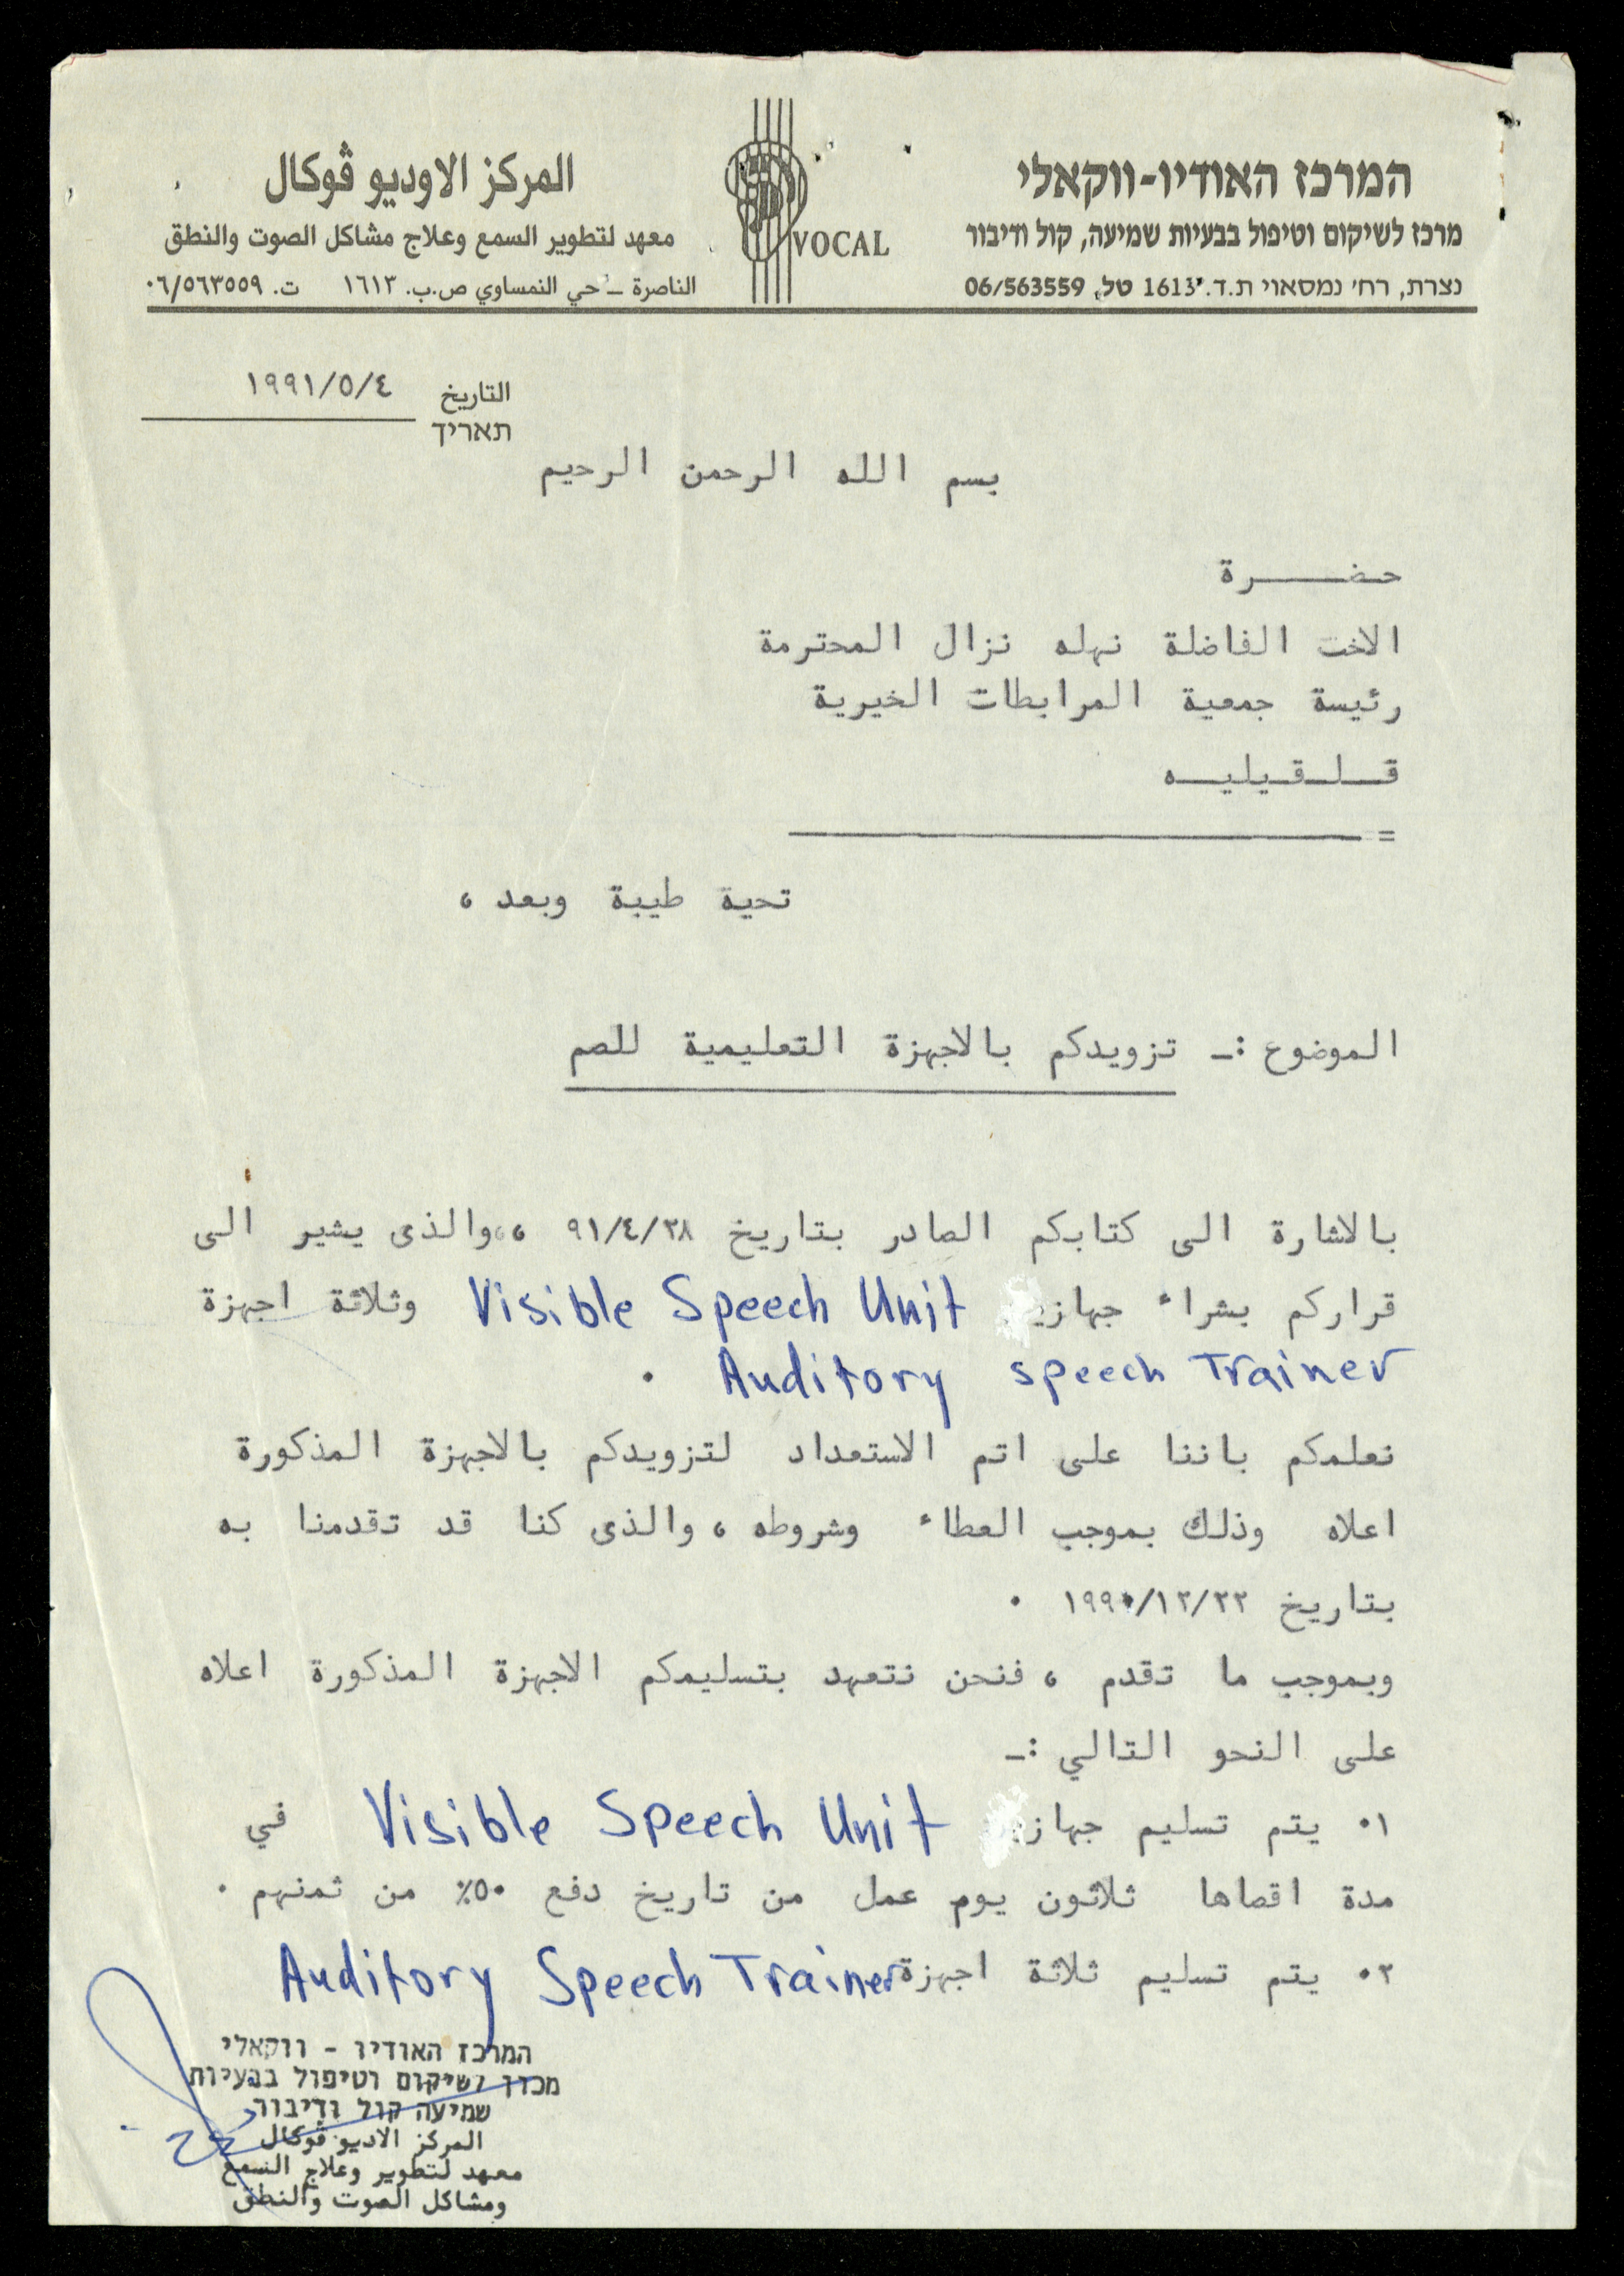 המרכז האודיו-ווקאלי
מרכז לשיקום וטיפול בבעיות שמיעה, קול ודיבור
נצרת, רח' נמסאוי ת.ד. 1613 טל. 06/563559
VOCAL
المركز الاوديو ڤوكال
معهد لتطوير السمع وعلاج مشاكل الصوت والنطق
الناصرة ــ حي النمساوي ص.ب. ١٦١٣ ت. ٠٦/٥٦٣٥٥٩
التاريخ ١٩٩١/٥/٤
תאריך
بسم الله الرحمن الرحيم
حضـــــرة
الاخت الفاضلة نهله نزال المحترمة
رئيسة جمعية المرابطات الخيرية
قــلــقــيليــه
=
تحية طيبة وبعد ،
الموضوع :ـ تزويدكم بالاجهزة التعليمية للصم
بالاشارة الى كتابكم الصادر بتاريخ ٩١/٤/٢٨ ،، والذى يشير الى
قراركم بشراء جهاز Visible Speech Unit وثلاثة اجهزة
Auditory speech Trainer .
نعلمكم باننا على اتم الاستعداد لتزويدكم بالاجهزة المذكورة
اعلاه وذلك بموجب العطاء وشروطه ، والذى كنا قد تقدمنا به
بتاريخ ١٩٩٠/١٢/٢٢ .
وبموجب ما تقدم ، فنحن نتعهد بتسليمكم الاجهزة المذكورة اعلاه
على النحو التالي :ـ
١. يتم تسليم جهاز Visible Speech Unit في
مدة اقصاها ثلاثون يوم عمل من تاريخ دفع ٥٠٪ من ثمنهم .
٢. يتم تسليم ثلاثة اجهزة Auditory Speech Trainer
המרכז האודיו - ווקאלי
מכון לשיקום וטיפול בבעיות
שמיעה קול ודיבור
المركز الاديو ڤوكال
معهد لتطوير وعلاج السمع
ومشاكل الصوت والنطق